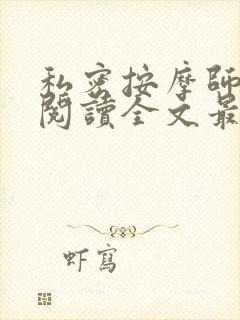 私密按摩師
閱讀全文最
虾寫